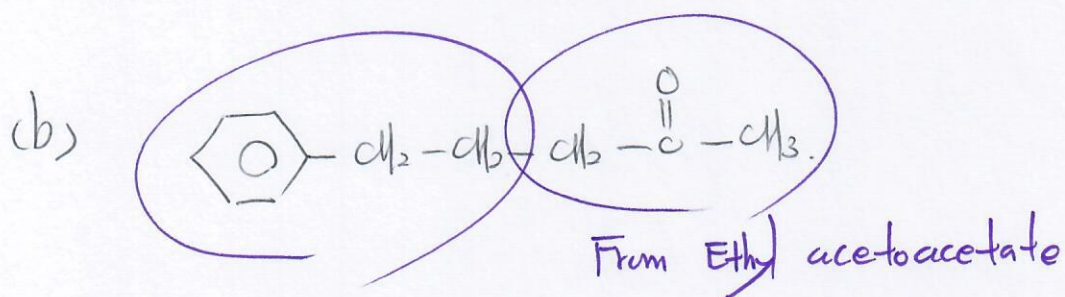 O
(b) CH2 - CH2 - CH2 - C - CH3.
From Ethyl acetoacetate